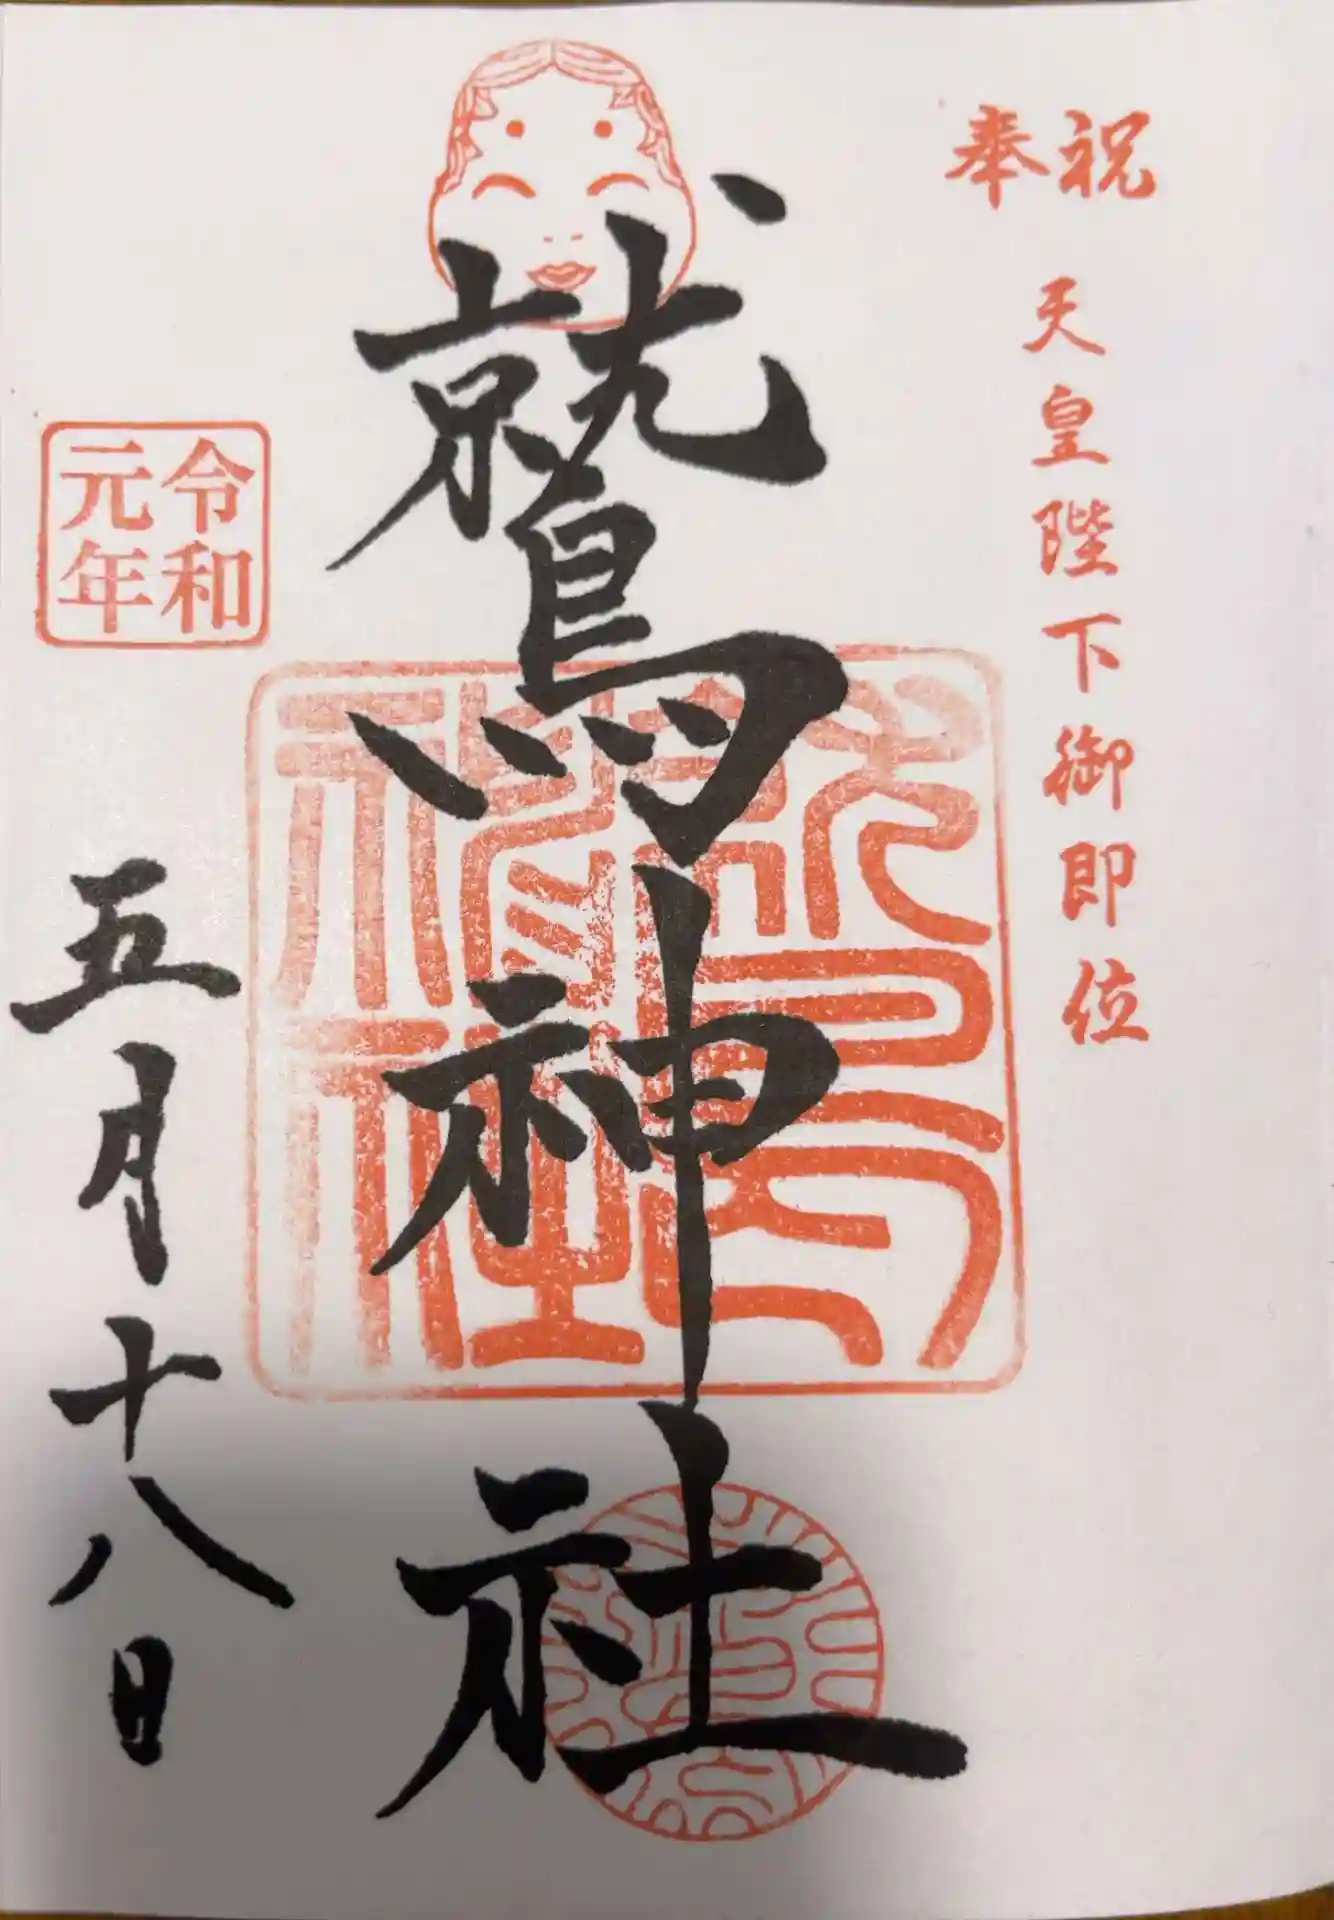 奉祝
天皇陛下御即位
鷲神社
鷲神社
令和
元年
五月十八日